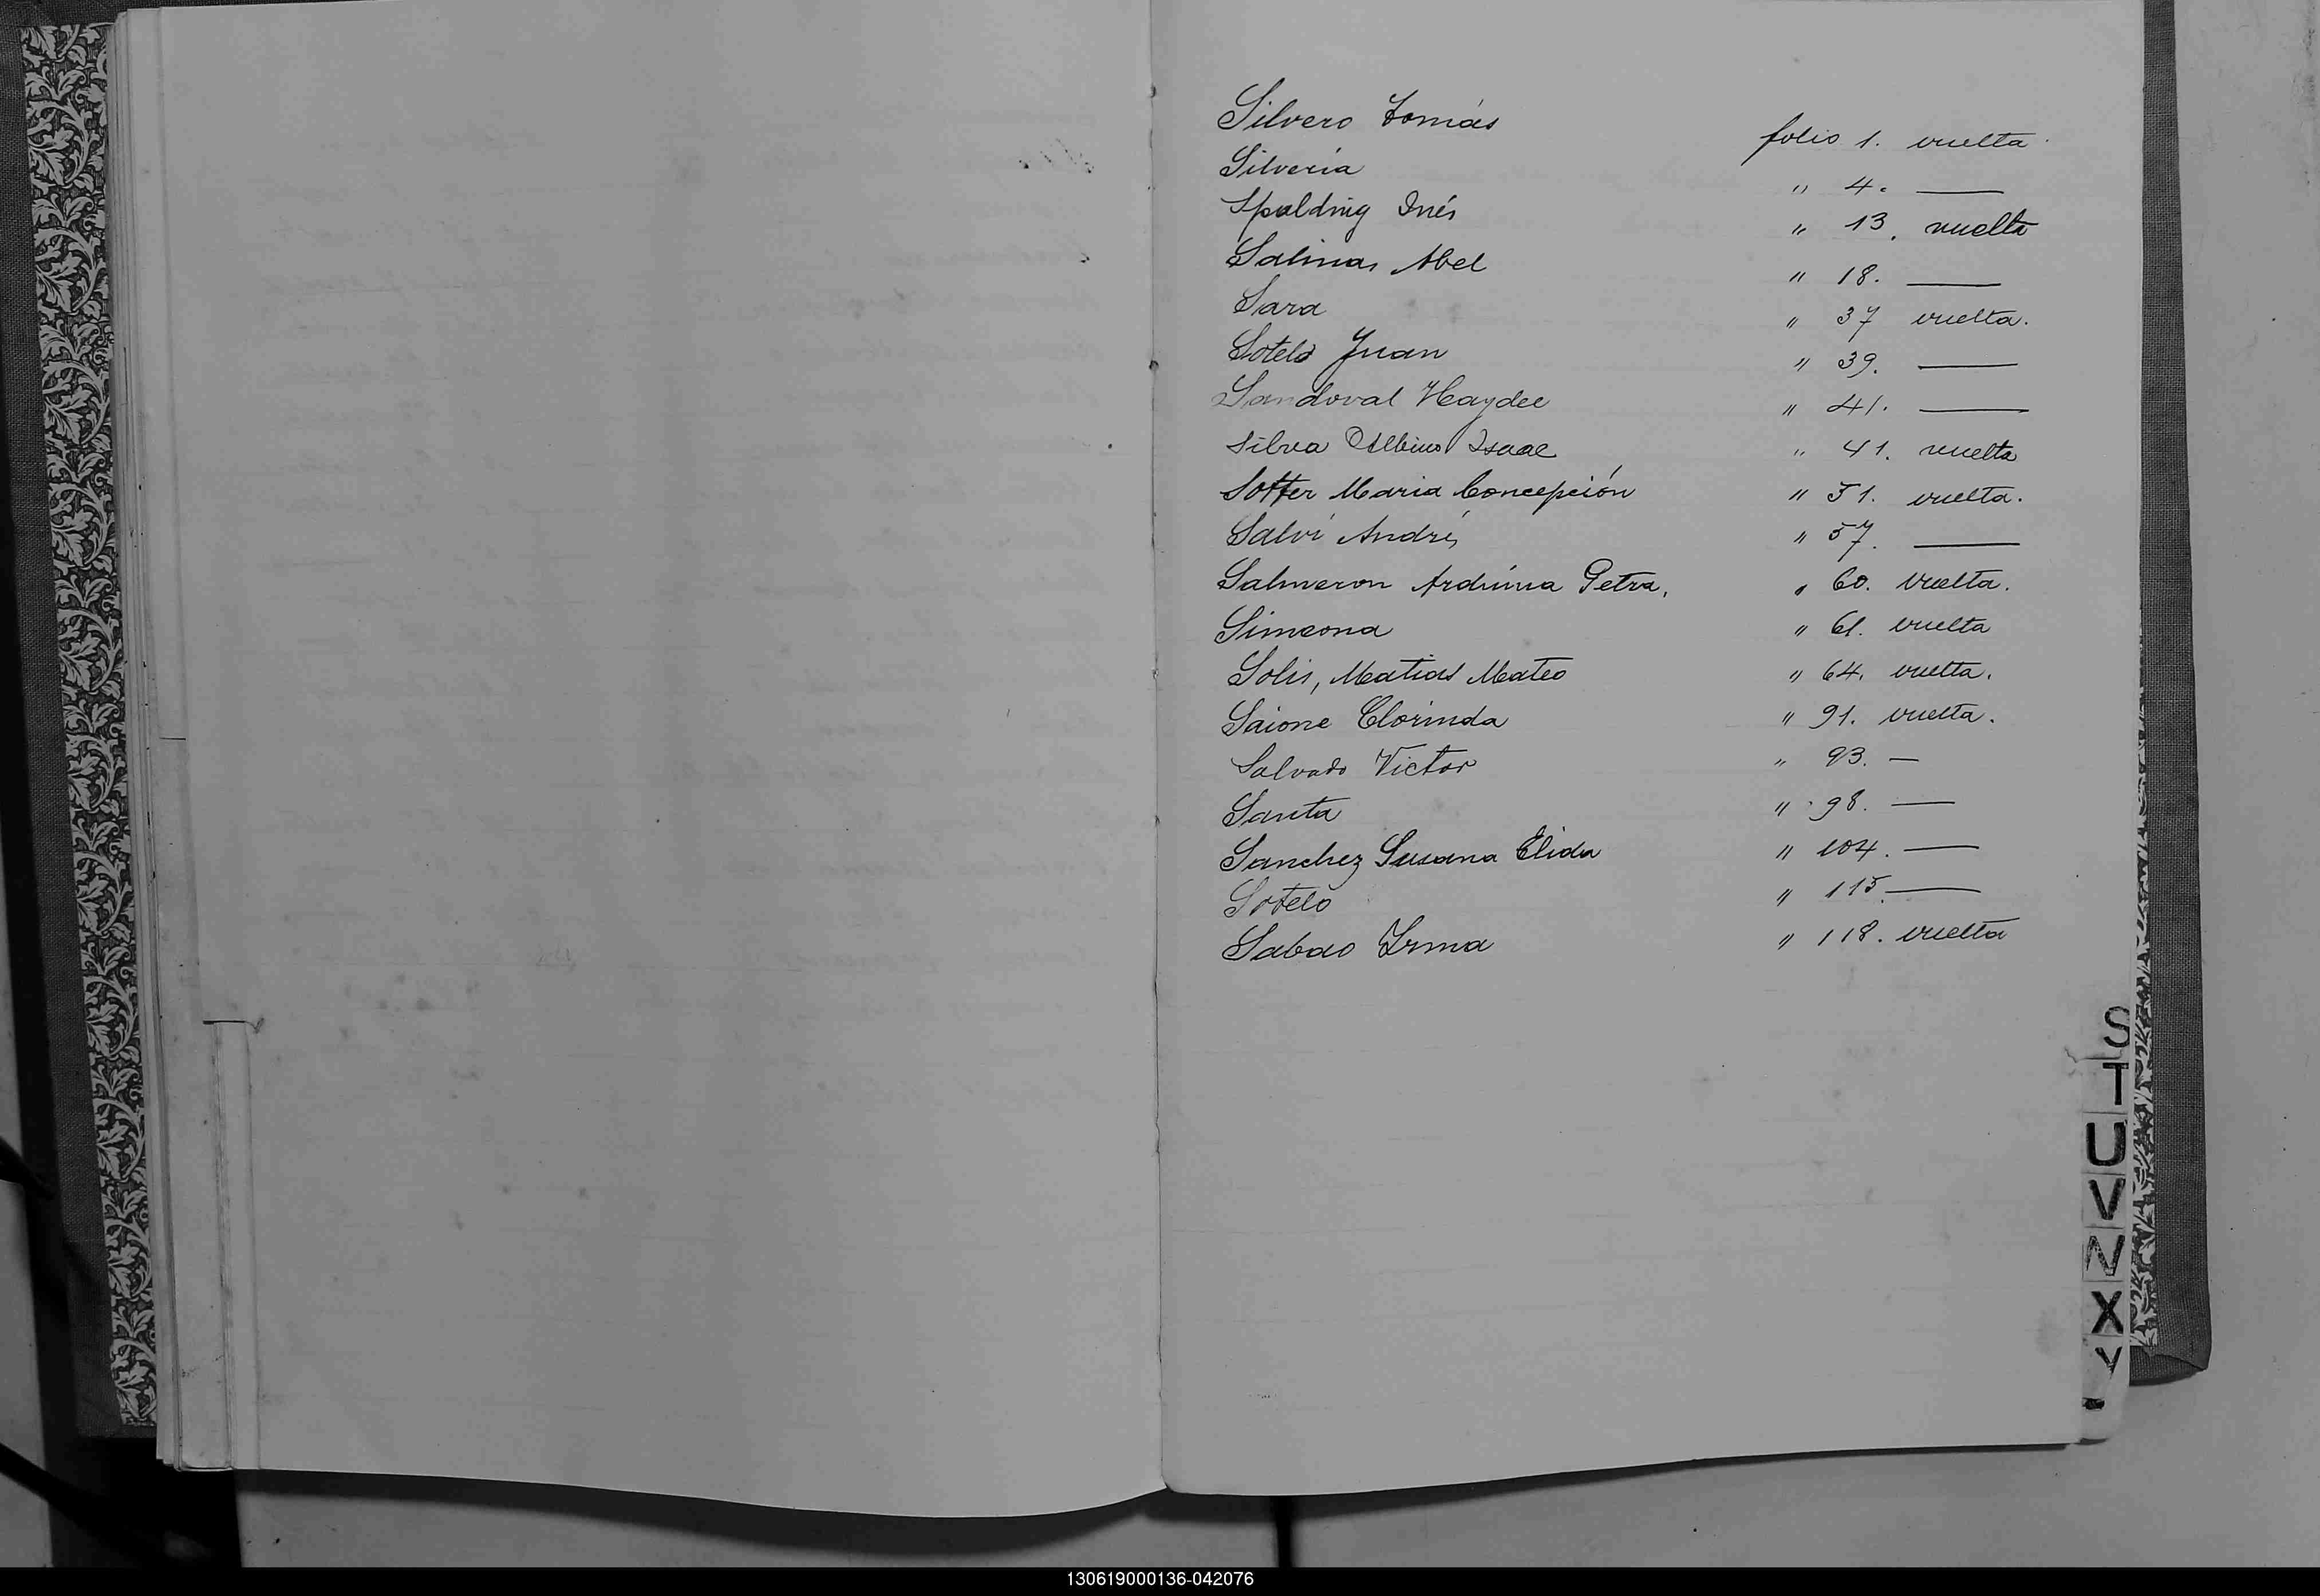 Silvero Tomás folio 1. vuelta
Silveria " 4. ——
Spalding Inés " 13. vuelta
Salinas Abel " 18. ——
Sara " 37 vuelta.
Sotelo Juan " 39. ——
Sandoval Haydee " 41. ——
Silva Albino Isaac " 41. vuelta
Sotter Maria Concepción " 51. vuelta.
Salvi Andrés " 57. ——
Salmeron Petra. " 60. vuelta.
Simeona " 61. vuelta
Solis, Matias Mateo " 64. vuelta.
Saione Clorinda " 91. vuelta.
Salvado Victor " 93. —
Santa " 98. ——
Sanchez Susana Elida " 104. ——
Sotelo " 115. ——
Sabao Irma " 118. vuelta
S
T
U
V
X
Y
130619000136-042076